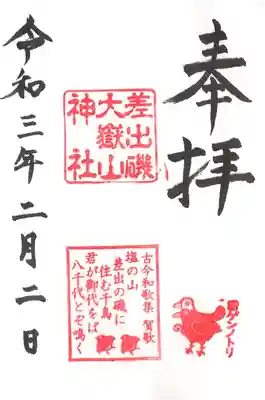 奉拝
差出磯
大嶽山
神社
古今和歌集 賀歌
塩の山
差出の磯に
住む千鳥
君が御代をば
八千代とぞ鳴く
令和三年二月二日